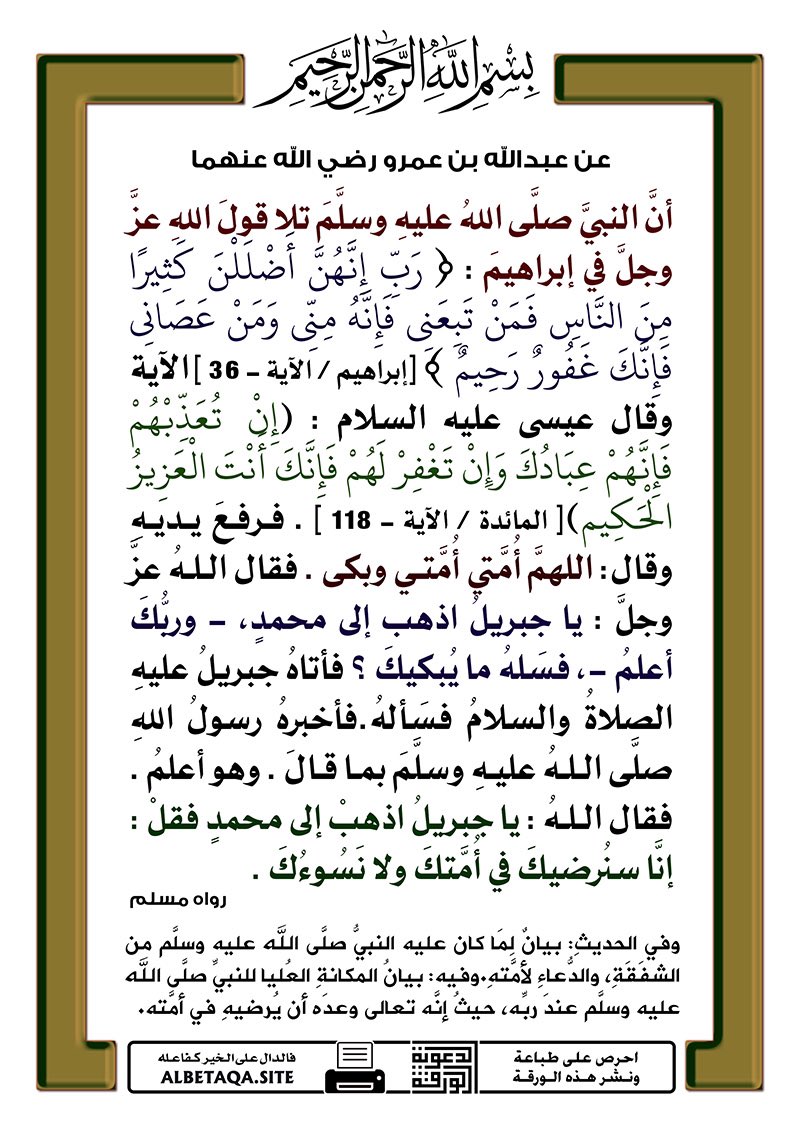 بِسْمِ اللَّهِ الرَّحْمَنِ الرَّحِيمِ
عن عبدالله بن عمرو رضي الله عنهما
أنَّ النبيَّ صلَّى اللهُ عليهِ وسلَّمَ تلا قولَ اللهِ عزَّ
وجلَّ في إبراهيمَ : ﴿ رَبِّ إِنَّهُنَّ أَضْلَلْنَ كَثِيرًا
مِنَ النَّاسِ فَمَنْ تَبِعَنِي فَإِنَّهُ مِنِّي وَمَنْ عَصَانِي
فَإِنَّكَ غَفُورٌ رَحِيمٌ ﴾ [إبراهيم / الآية - 36 ] الآية
وقال عيسى عليه السلام : (إِنْ تُعَذِّبْهُمْ
فَإِنَّهُمْ عِبَادُكَ وَإِنْ تَغْفِرْ لَهُمْ فَإِنَّكَ أَنْتَ الْعَزِيزُ
الْحَكِيم)[ المائدة / الآية - 118 ] . فـرفـعَ يـديـهِ
وقال: اللهمَّ أُمَّتي أُمَّتـي وبكى . فقال اللـهُ عزَّ
وجلَّ : يا جبريلُ اذهب إلى محمدٍ، - وربُّكَ
أعلمُ -، فسَلهُ ما يُبكيكَ ؟ فأتاهُ جبريلُ عليهِ
الصلاةُ والسلامُ فسَألهُ.فأخبرهُ رسولُ اللهِ
صلَّى اللـهُ عليـهِ وسلَّمَ بمـا قـالَ . وهو أعلمُ .
فقال اللـهُ : يا جبريلُ اذهبْ إلى محمدٍ فقلْ :
إنَّا سنُرضيكَ في أُمَّتكَ ولا نَسُوءُكَ .
رواه مسلم
وفي الحديثِ: بيانٌ لِمَا كان عليه النبيُّ صلَّى اللَّه عليه وسلَّم من
الشفَقَةِ، والدُّعاءِ لأمَّتهِ.وفيه: بيانُ المكانةِ العُليا للنبيِّ صلَّى اللَّه
عليه وسلَّم عندَ ربِّه، حيثُ إنَّه تعالى وعدَه أن يُرضيهِ في أمَّته.
احرص على طباعة
ونـشر هـذه الـورقـة
الدعوية
الورقة
فالدال على الخير كفاعله
ALBETAQA.SITE